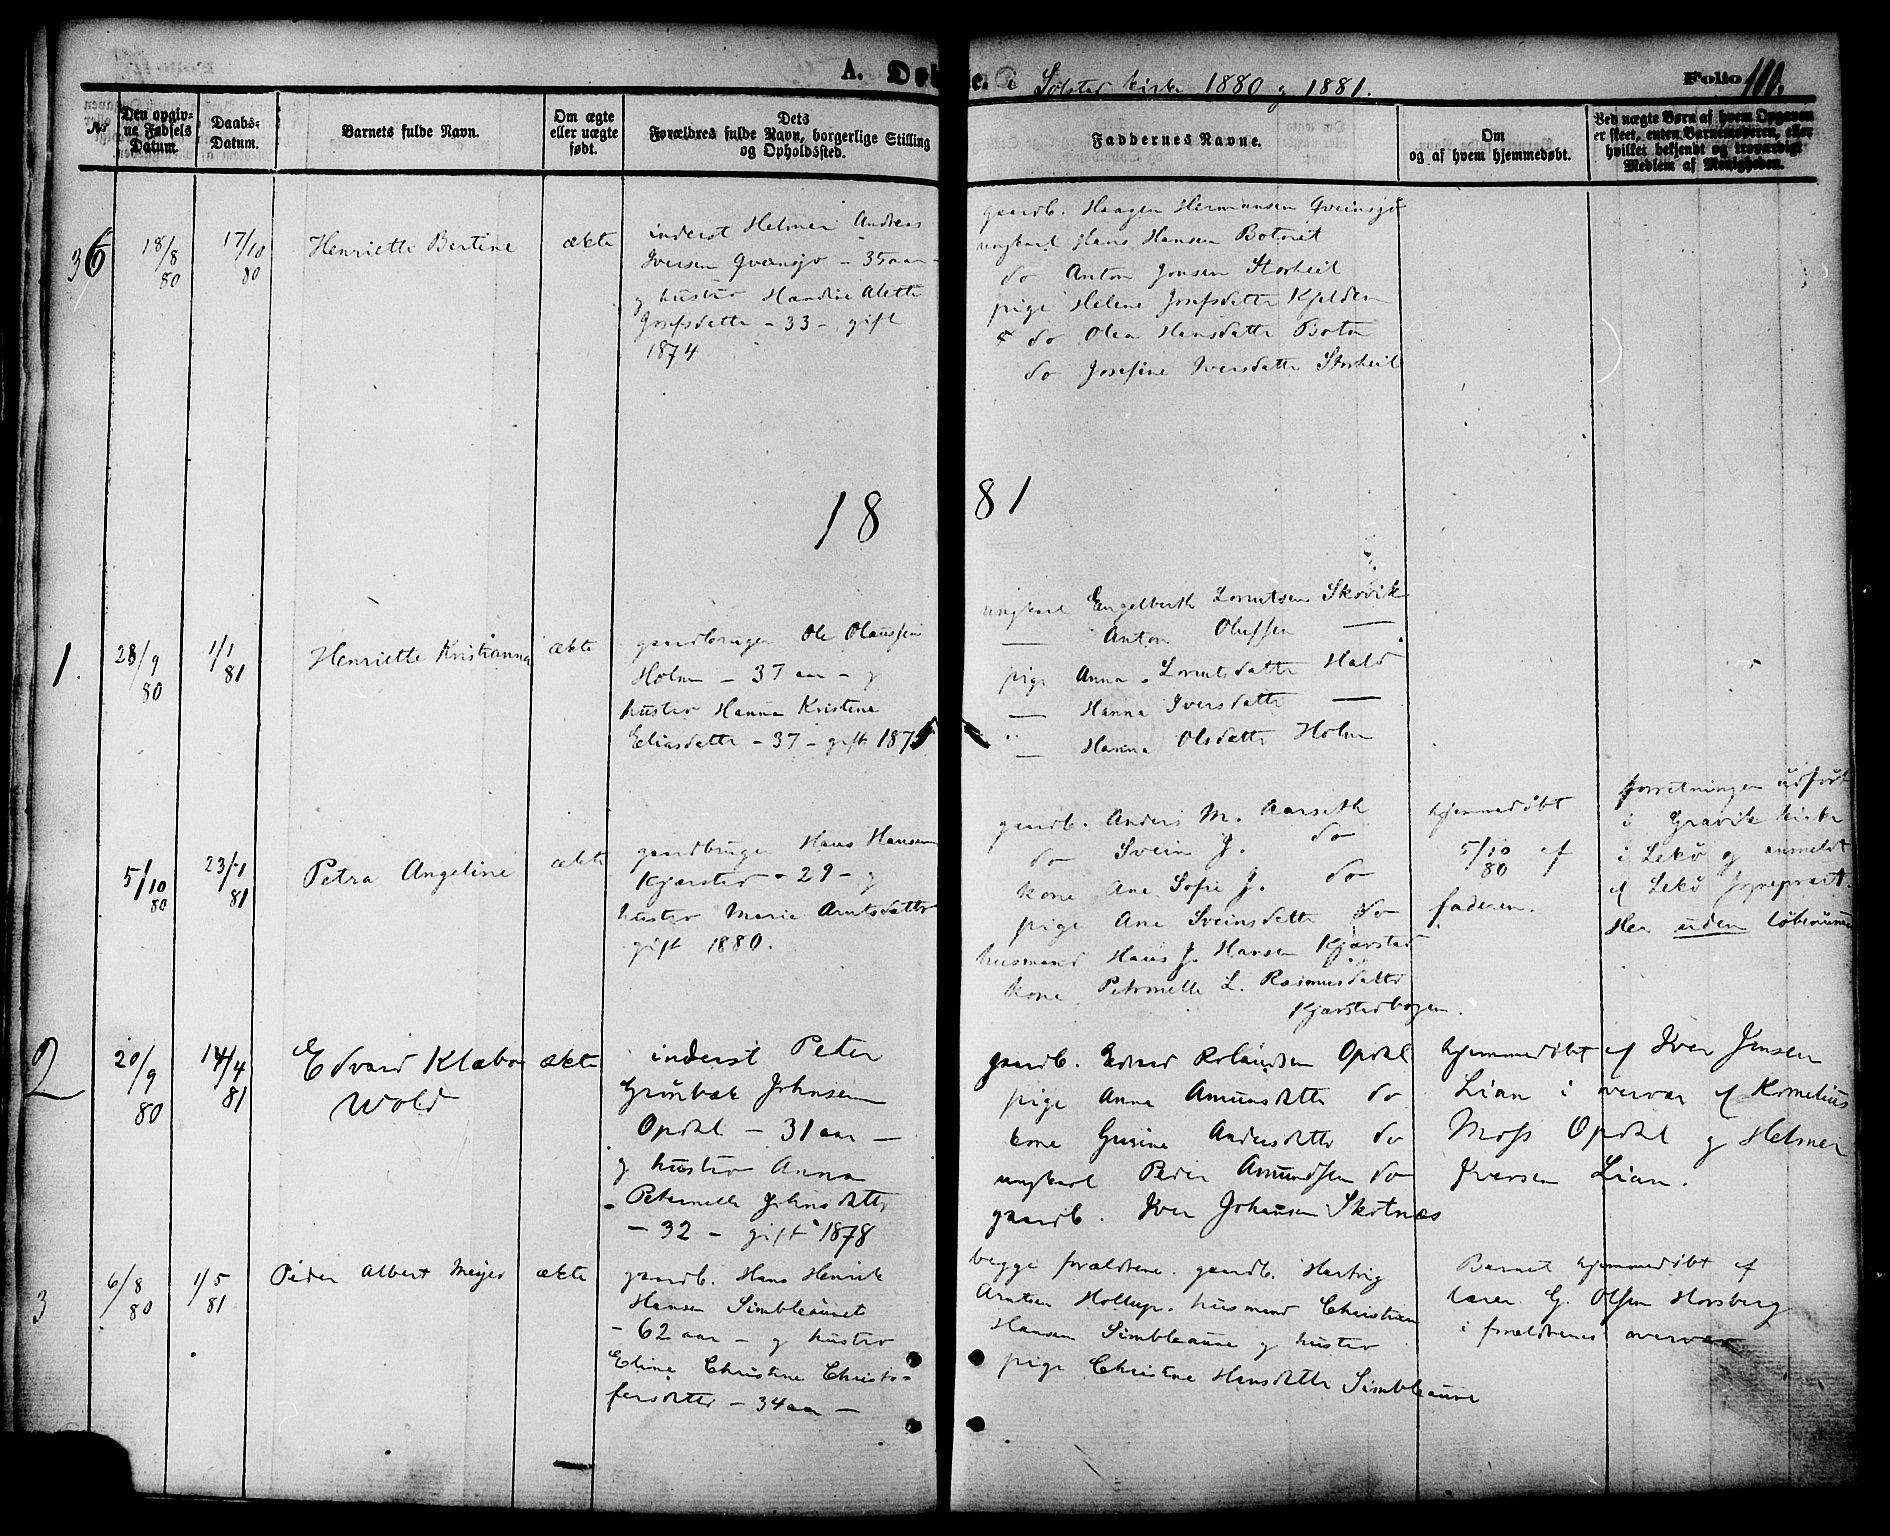 A. Døbte. i Solstad kirke 1880 og 1881.
Folio 110.
No
Den opgivne Fødsels Datum.
Daabs-Datum.
Barnets fulde Navn.
Om ægte eller uægte født.
Dets Forældres fulde Navn, borgerlige Stilling og Opholdssted.
Faddernes Navne.
Om og af hvem hjemmedøbt.
Ved uægte Børn af hvem Opgaven er skeet, enten Barnemoderen, eller hvilket bekjendt og troværdigt Medlem af Menigheden.
36
18/8 80
17/10 80
Henriette Bertine
ækte
inderst Helmer Andreas
Iversen Qveinsjø - 35 aar -
g hustro Handine Alette
Josefsdatter - 33 - gift
1874
gaardb. Haagen Hermansen Qveinsjø
ungkarl Hans Hansen Botnet
do Anton Jonsen Storheil
pige Helene Josefsdatter Kjelden
do Olea Hansdatter Botn
do Josefine Iversdatter Storheil
18 81
1.
28/9 80
1/1 81
Henriette Kristianna
ækte
gaardbruger Ole Olaussen
Holm - 37 aar - g
hustro Hanna Kristine
Eliasdatter - 37 - gift 1875
ungkarl Engelberth Lorntsen Skovik
— Anton Olufsen —
pige Anna Lorntsdatter Hald
— Hanna Iversdatter —
— Hanna Olsdatter Holm
5/10 80
23/1 81
Petra Angeline
ækte
gaardbruger Hans Hansen
Kjærstad - 29 - g
hustro Marie Arntsdatter
gift 1880.
gaardb. Anders M. Aarseth
do Svein J. do
kone Ane Sofie J. do
pige Ane Sveinsdatter do
husmand Hans J. Hansen Kjærstad
kone Petrnelle L. Rasmusdatter
Kjærstadbogen.
hjemmedøbt
5/10 80 af
faderen.
forretningen udført
i Gravik kirke
i Lekø og anmeldt
af Lekø Sognepræst.
Her uden løbenumer
2
20/9 80
14/4 81
Edvard Klæbo
Wold
ækte
inderst Peder
Grünbæk Johnsen
Opdal - 31 aar -
g hustro Anna
Peternelle Johnsdatter
- 32 - gift 1878
gaardb. Edvard Rolandsen Opdal
pige Anne Amundsdatter do
kone Gurine Andersdatter do
ungkarl Peder Amundsen do
gaardb. Iver Johansen Skotnæs
hjemmedøbt af Iver Jensen
Lian i overvær af Kornelius
Moss Opdal g Helmer
Iversen Lian.
3
6/8 80
1/5 81
Peder Albert Meyer
ækte
gaardb. Hans Henrik
Hansen Simbleaunet
- 62 aar - g hustro
Eline Christine Christo-
fersdatter - 34 aar -
begge forældrene. gaardb. Hartvig
Arntsen Hollup. husmand Christian
Hansen Simbleaune g hustro
pige Christine Hansdatter Simbleaune
Barnet hjemmedøbt af
lærer G. Olsen Horsberg
i forældrenes overvær